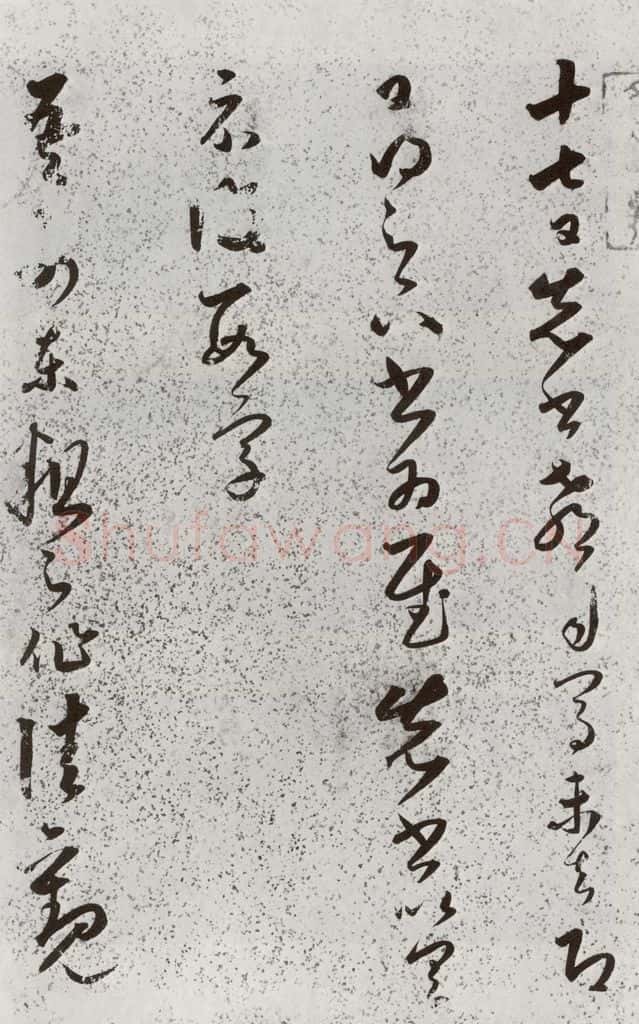 十七日先書郗司馬未去即
日得足下書為慰先書以具
示復數字
吾前東粗足作佳觀
Shufawang.CN